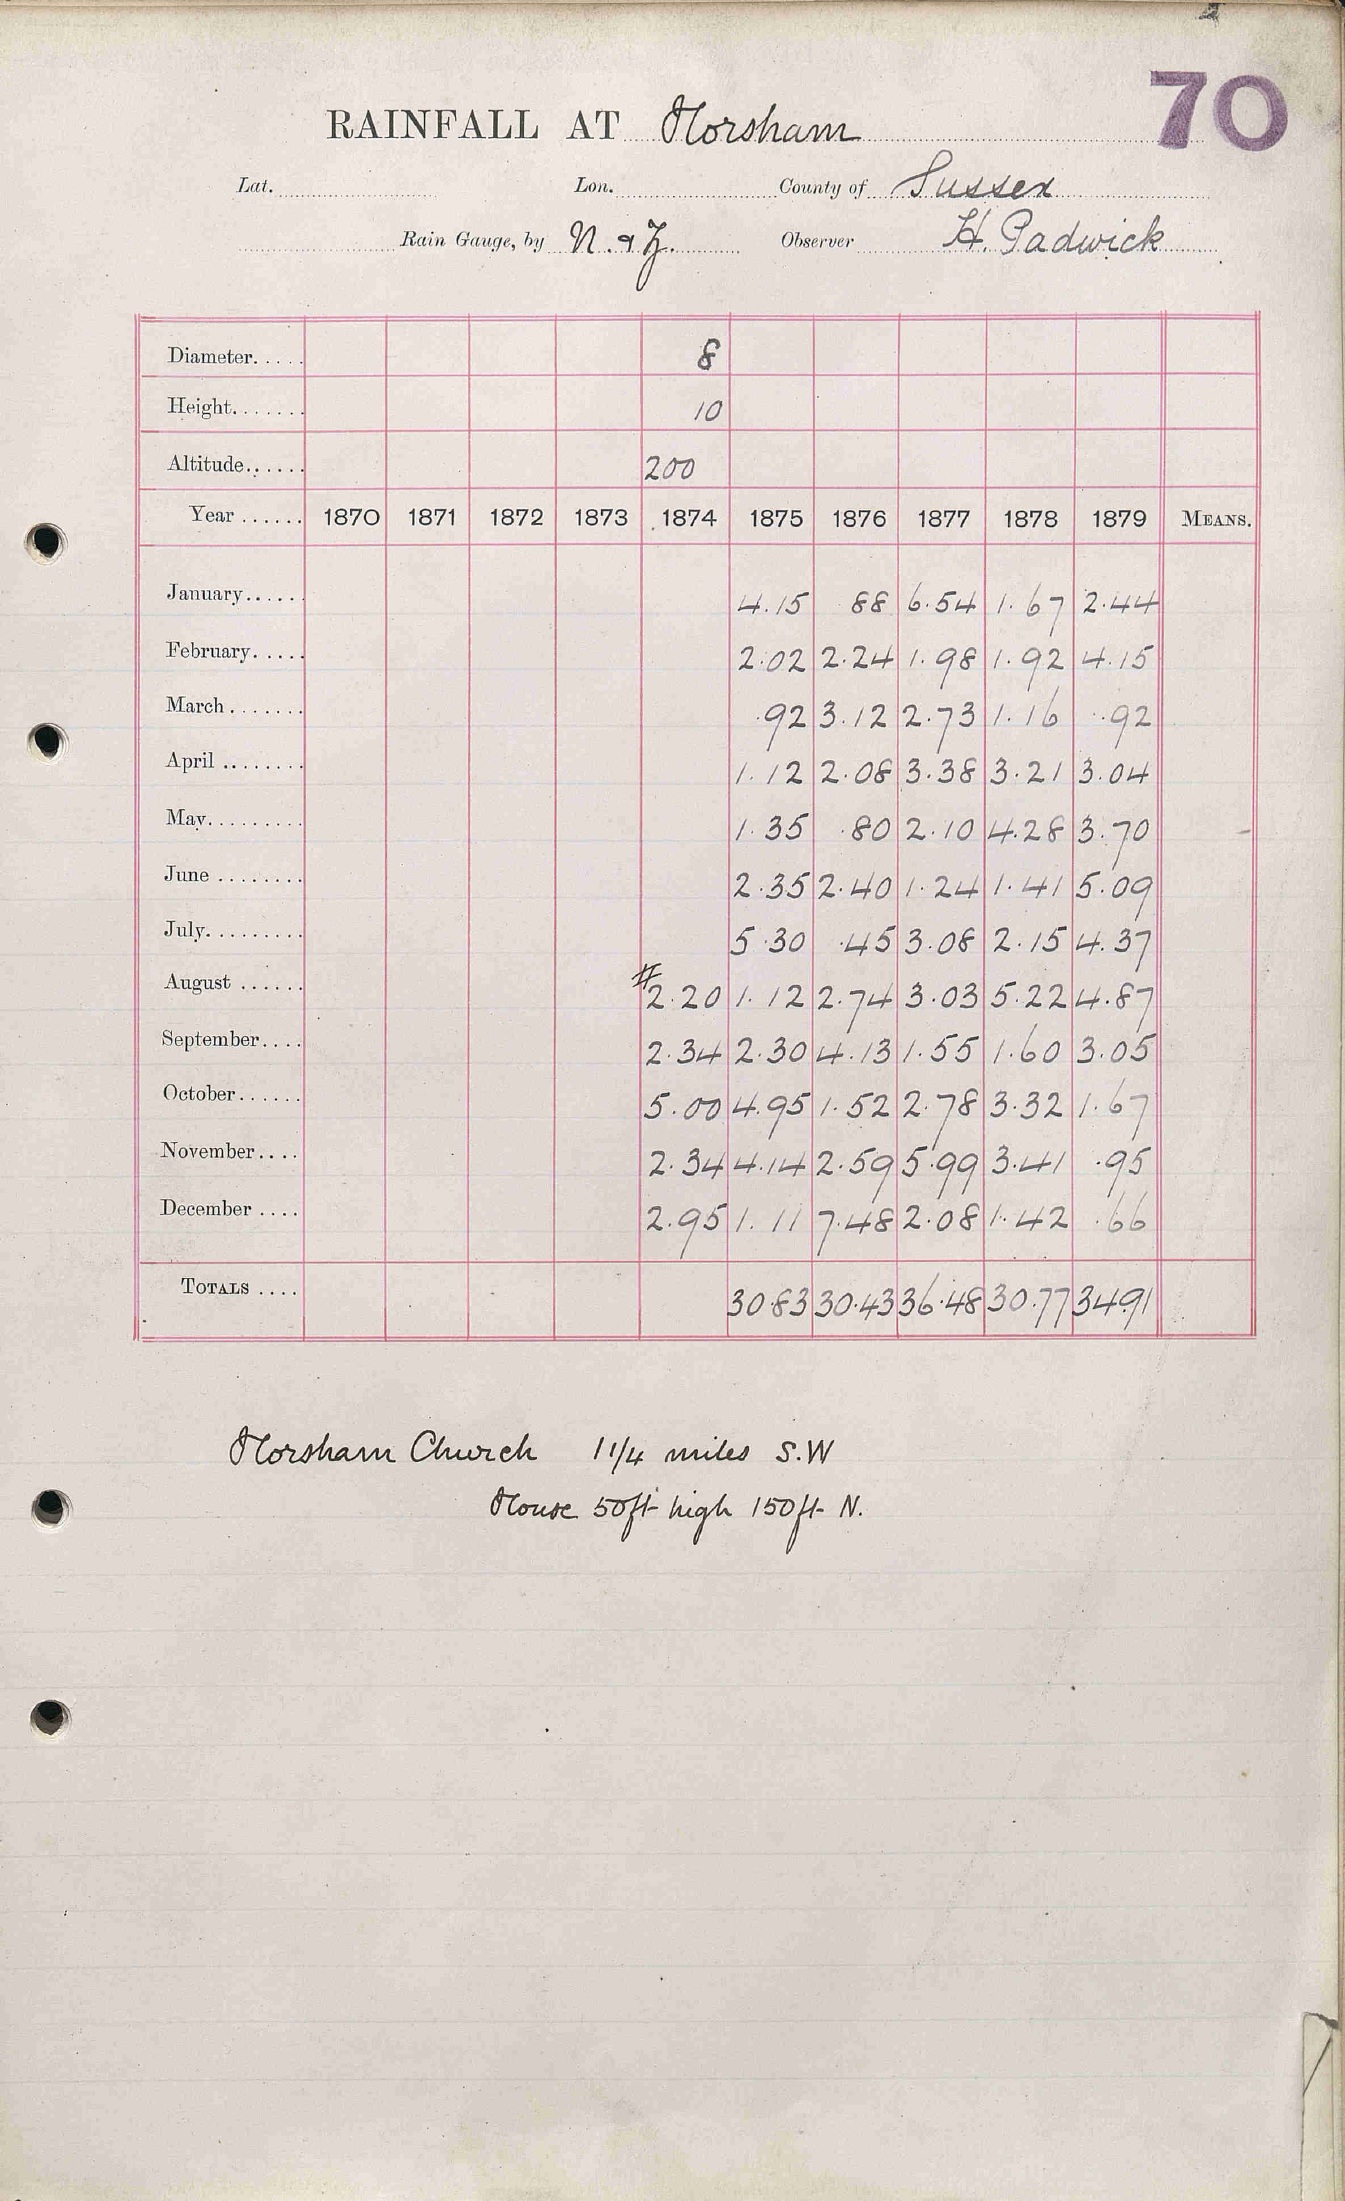 70
RAINFALL AT Horsham
Lat. Lon. County of Sussex
Rain Gauge, by N. & Z. Observer H. Padwick
Diameter..... 8
Height....... 10
Altitude...... 200
Year ...... 1870 1871 1872 1873 1874 1875 1876 1877 1878 1879 MEANS.
January...... 4.15 88 6.54 1.67 2.44
February..... 2.02 2.24 1.98 1.92 4.15
March ....... .92 3.12 2.73 1.16 .92
April ........ 1.12 2.08 3.38 3.21 3.04
May......... 1.35 .80 2.10 4.28 3.70
June ........ 2.35 2.40 1.24 1.41 5.09
July......... 5.30 .45 3.08 2.15 4.37
August ...... #2.20 1.12 2.74 3.03 5.22 4.87
September.... 2.34 2.30 4.13 1.55 1.60 3.05
October...... 5.00 4.95 1.52 2.78 3.32 1.67
November.... 2.34 4.14 2.59 5.99 3.41 .95
December .... 2.95 1.11 7.48 2.08 1.42 .66
TOTALS .... 30.83 30.43 36.48 30.77 34.91
Horsham Church 1 1/4 miles S.W
House 50ft high 150ft N.